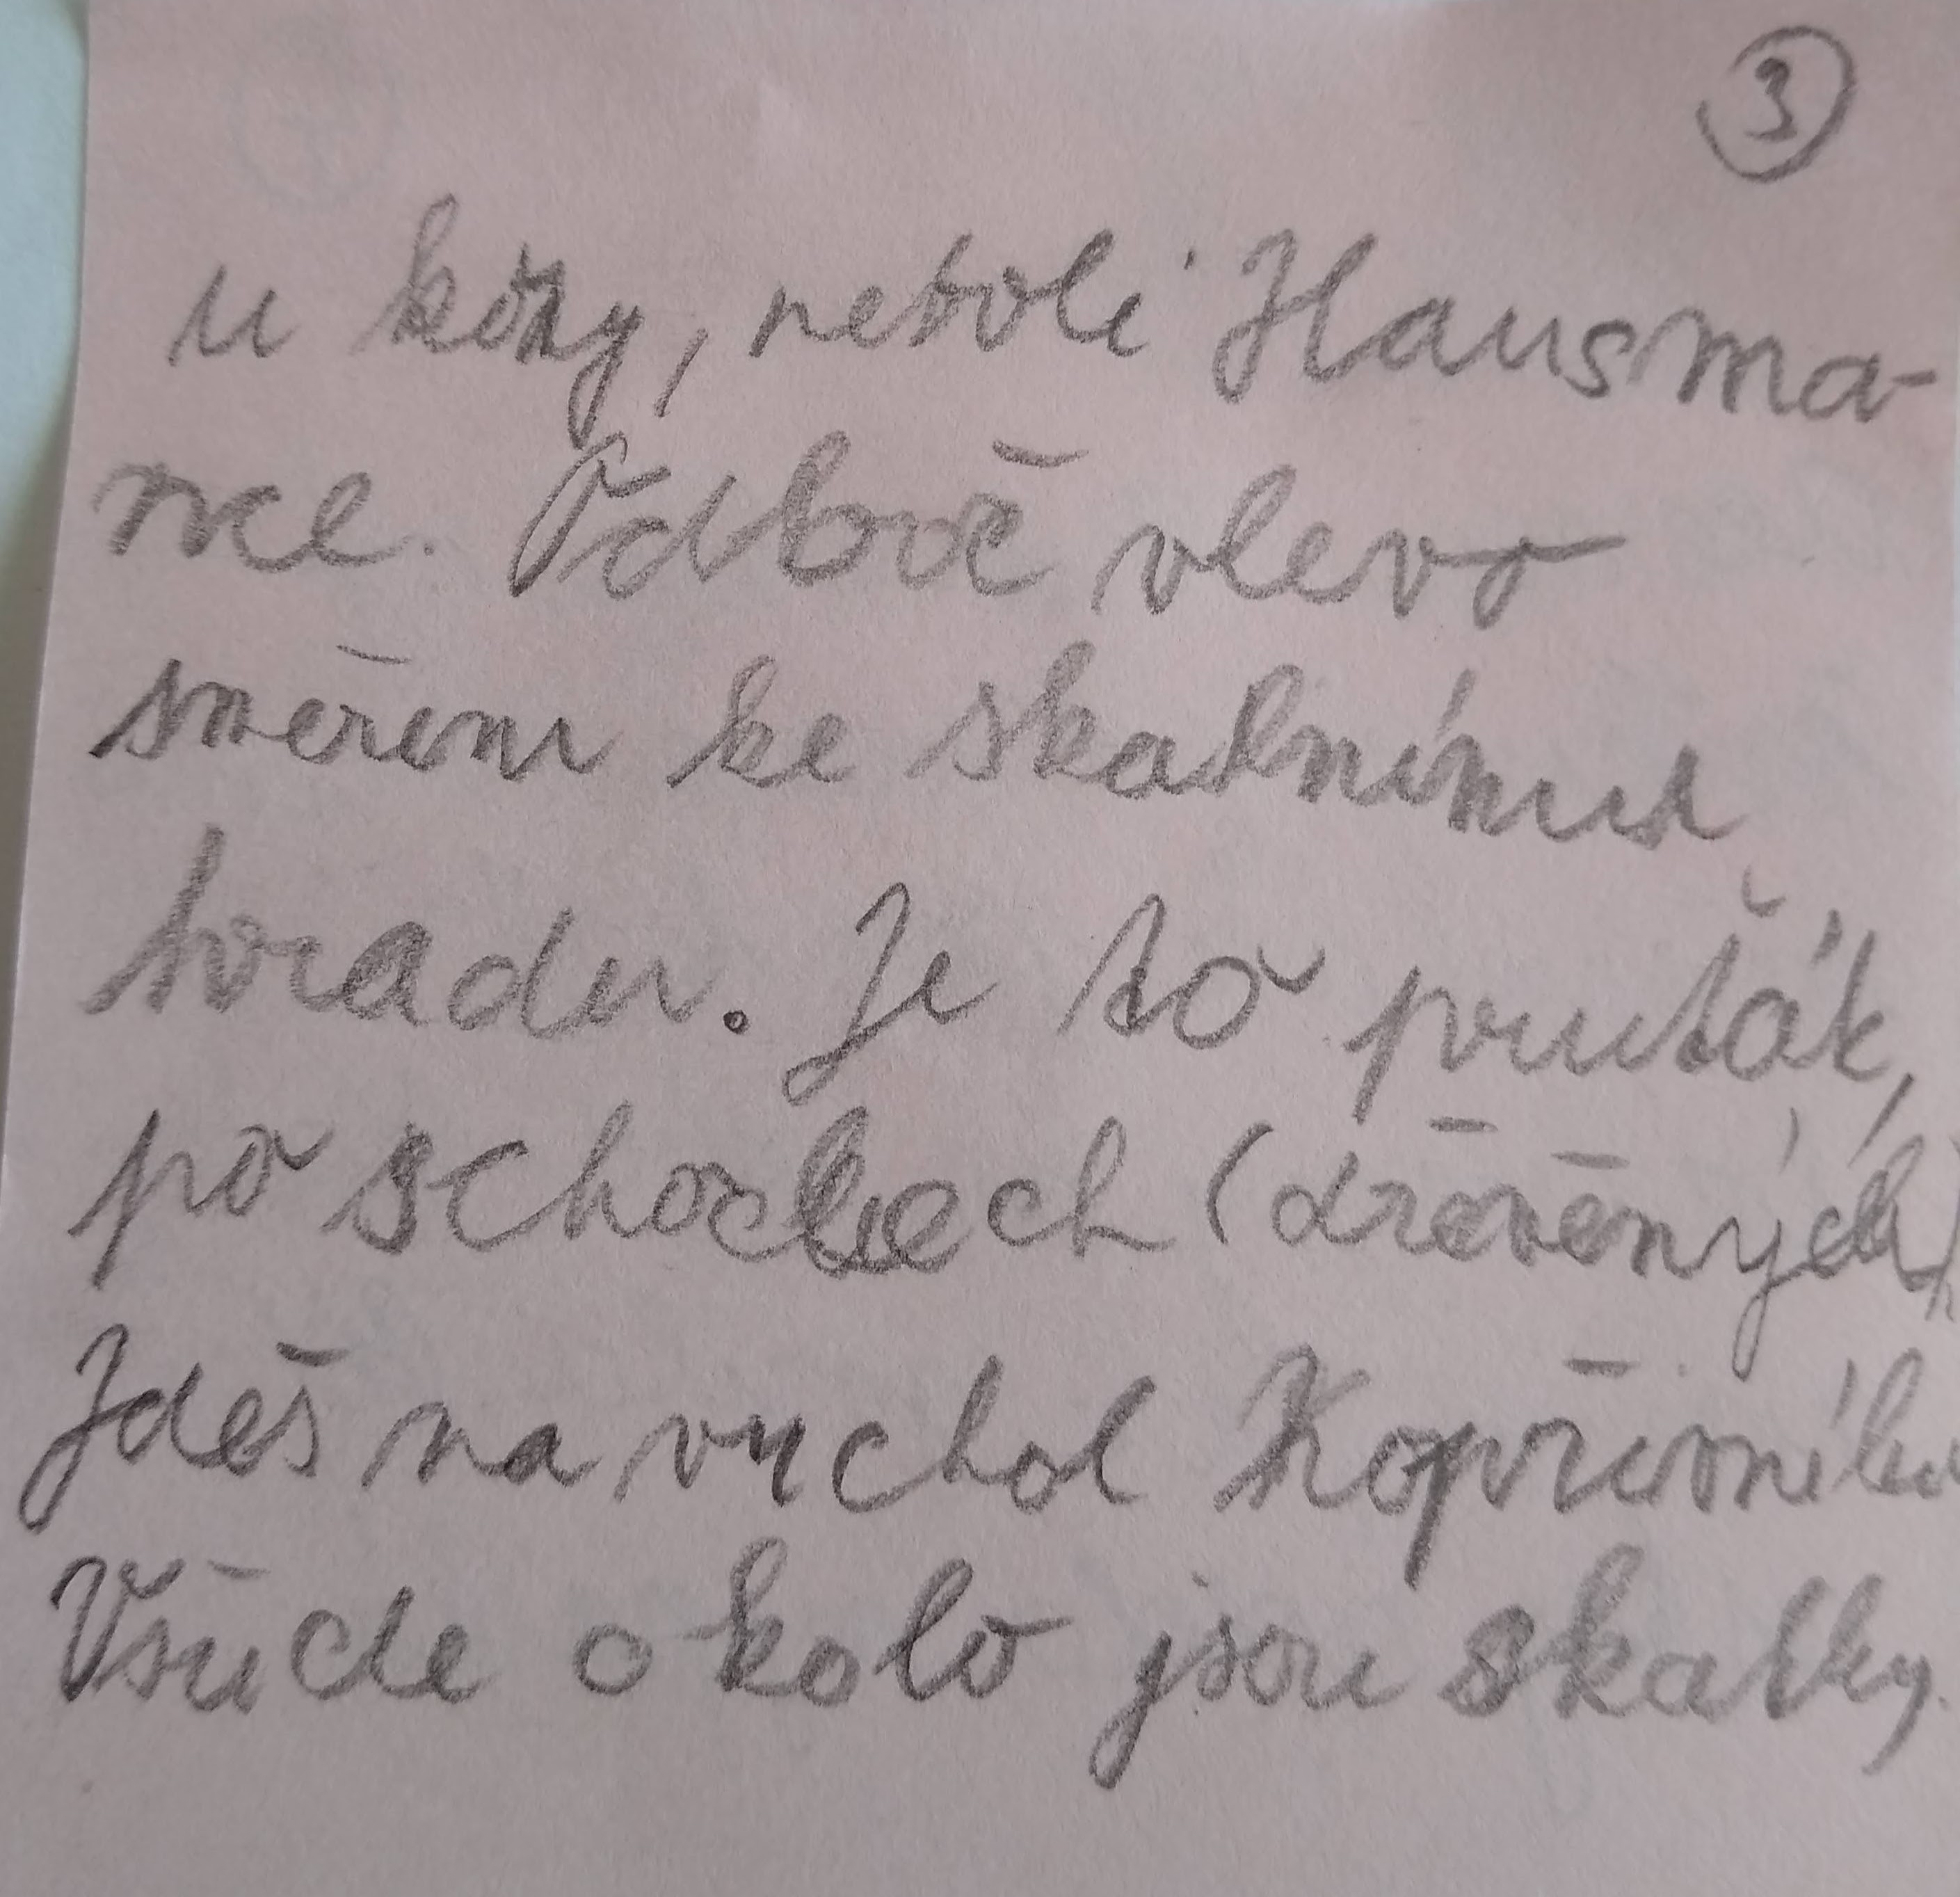 3
u kózy, neboli Hausma-
nce. Odboč vlevo
směrem ke skalnímu
hradu. Je to pruťák,
po schodech (dřevěných)
Jdeš na vrchol Kopřivného
Všude okolo jsou skalky.